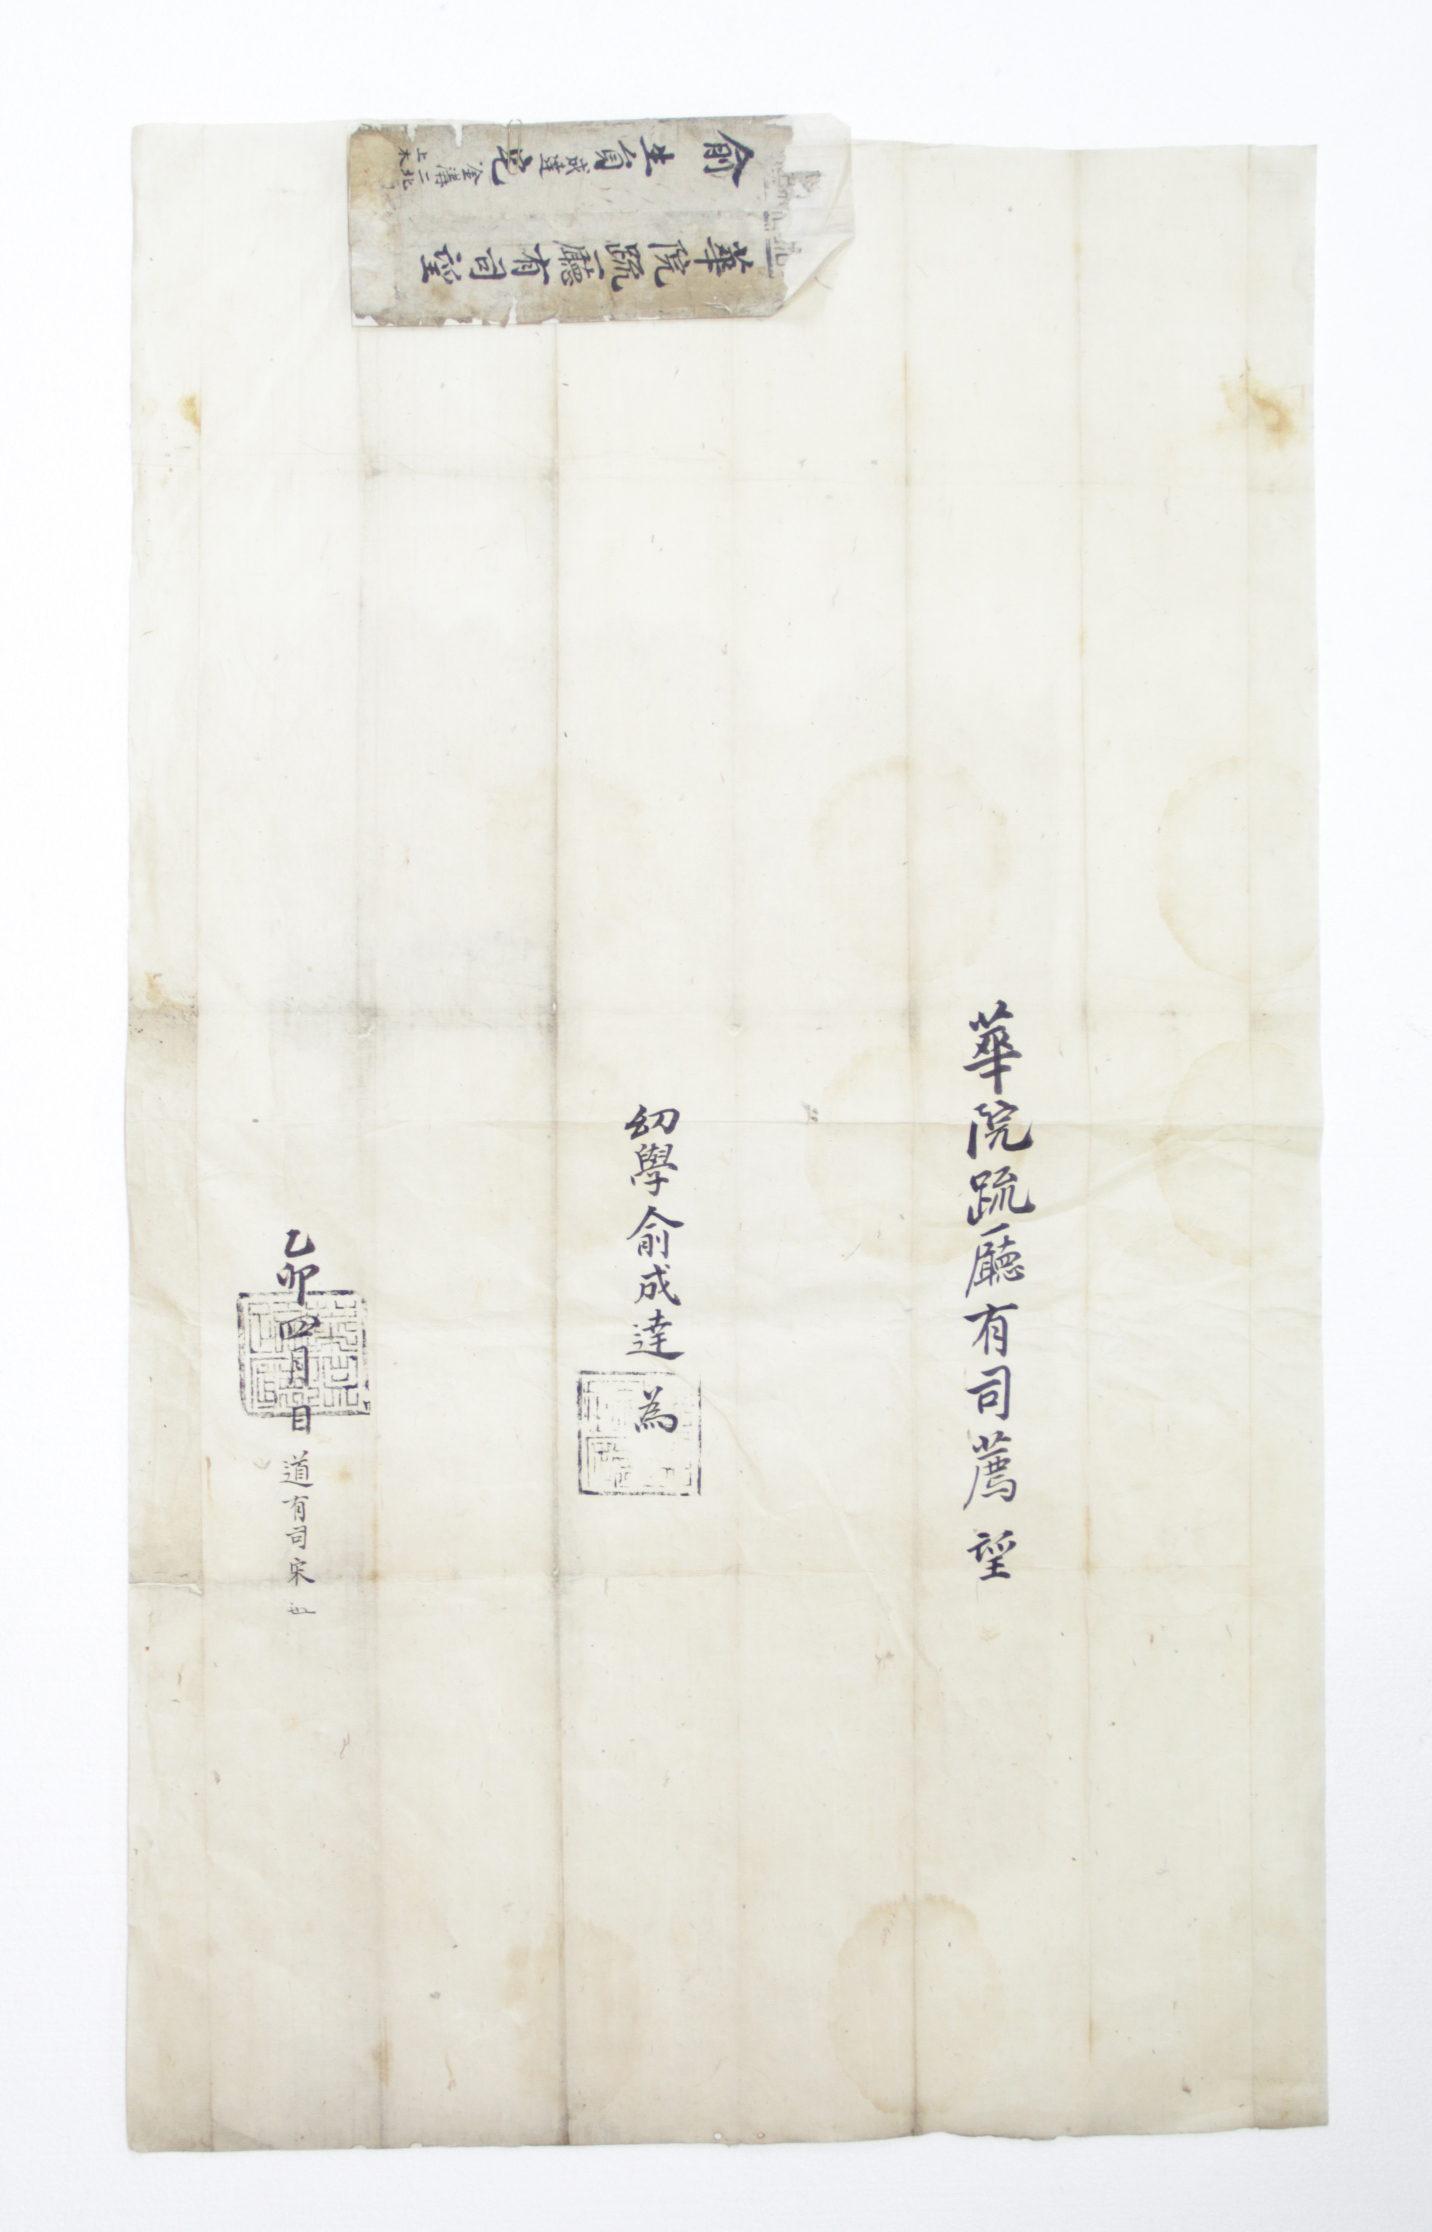 華院疏廳有司薦望
幼學俞成達 為
乙卯四月 日 道有司宋
華院疏廳有司望
俞生員成達宅